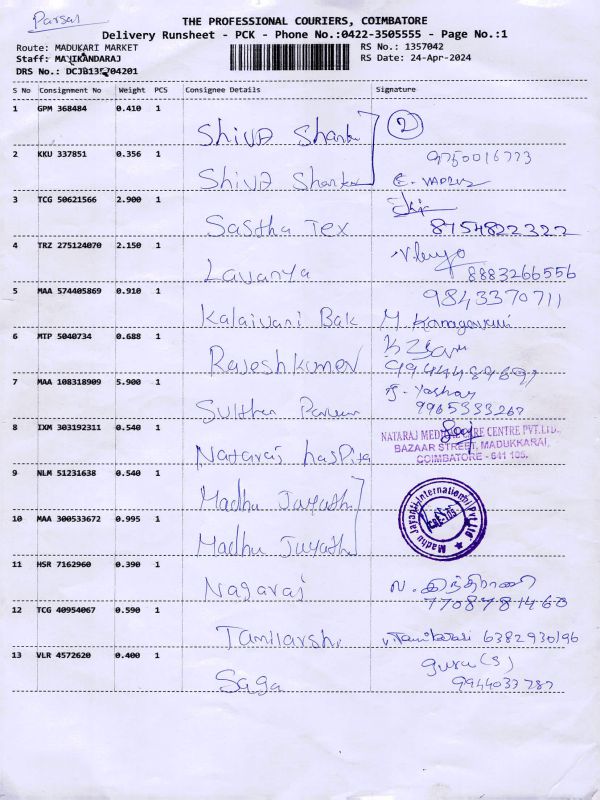 Parsal
THE PROFESSIONAL COURIERS, COIMBATORE
Delivery Runsheet - PCK - Phone No.:0422-3505555 - Page No.:1
Route: MADUKARI MARKET
RS No.: 1357042
Staff: MANIKANDARAJ
RS Date: 24-Apr-2024
DRS No.: DCJB135704201
S No Consignment No Weight PCS Consignee Details Signature
1 GPM 368484 0.410 1 Shiva Shanker 2
2 KKU 337851 0.356 1 Shiva Shanker 9750016773
3 TCG 50621566 2.900 1 Sastha Tex 8754822322
4 TRZ 275124070 2.150 1 Lavanya 8883266556
5 MAA 574405869 0.910 1 Kalaivani Bak 9843370711
M Kanagamani
6 MTP 5040734 0.688 1 Rajeshkumar
7 MAA 108318909 5.900 1 Sulthan 9965333267
8 IXM 303192311 0.540 1 Nataraj hospita
NATARAJ MEDICAL CARE CENTRE PVT.LTD.,
BAZAAR STREET, MADUKKARAI,
COIMBATORE - 641 105.
9 NLM 51231638 0.540 1 Madhu Jayath
Madhu Jayanthi International Pvt.Ltd
CBE-105
10 MAA 300533672 0.995 1 Madhu Jayath
11 HSR 7162960 0.390 1 Nagaraj
7708781460
12 TCG 40954067 0.590 1 Tamilarsh 6382930196
13 VLR 4572620 0.400 1 Saga guru(s)
9944033787